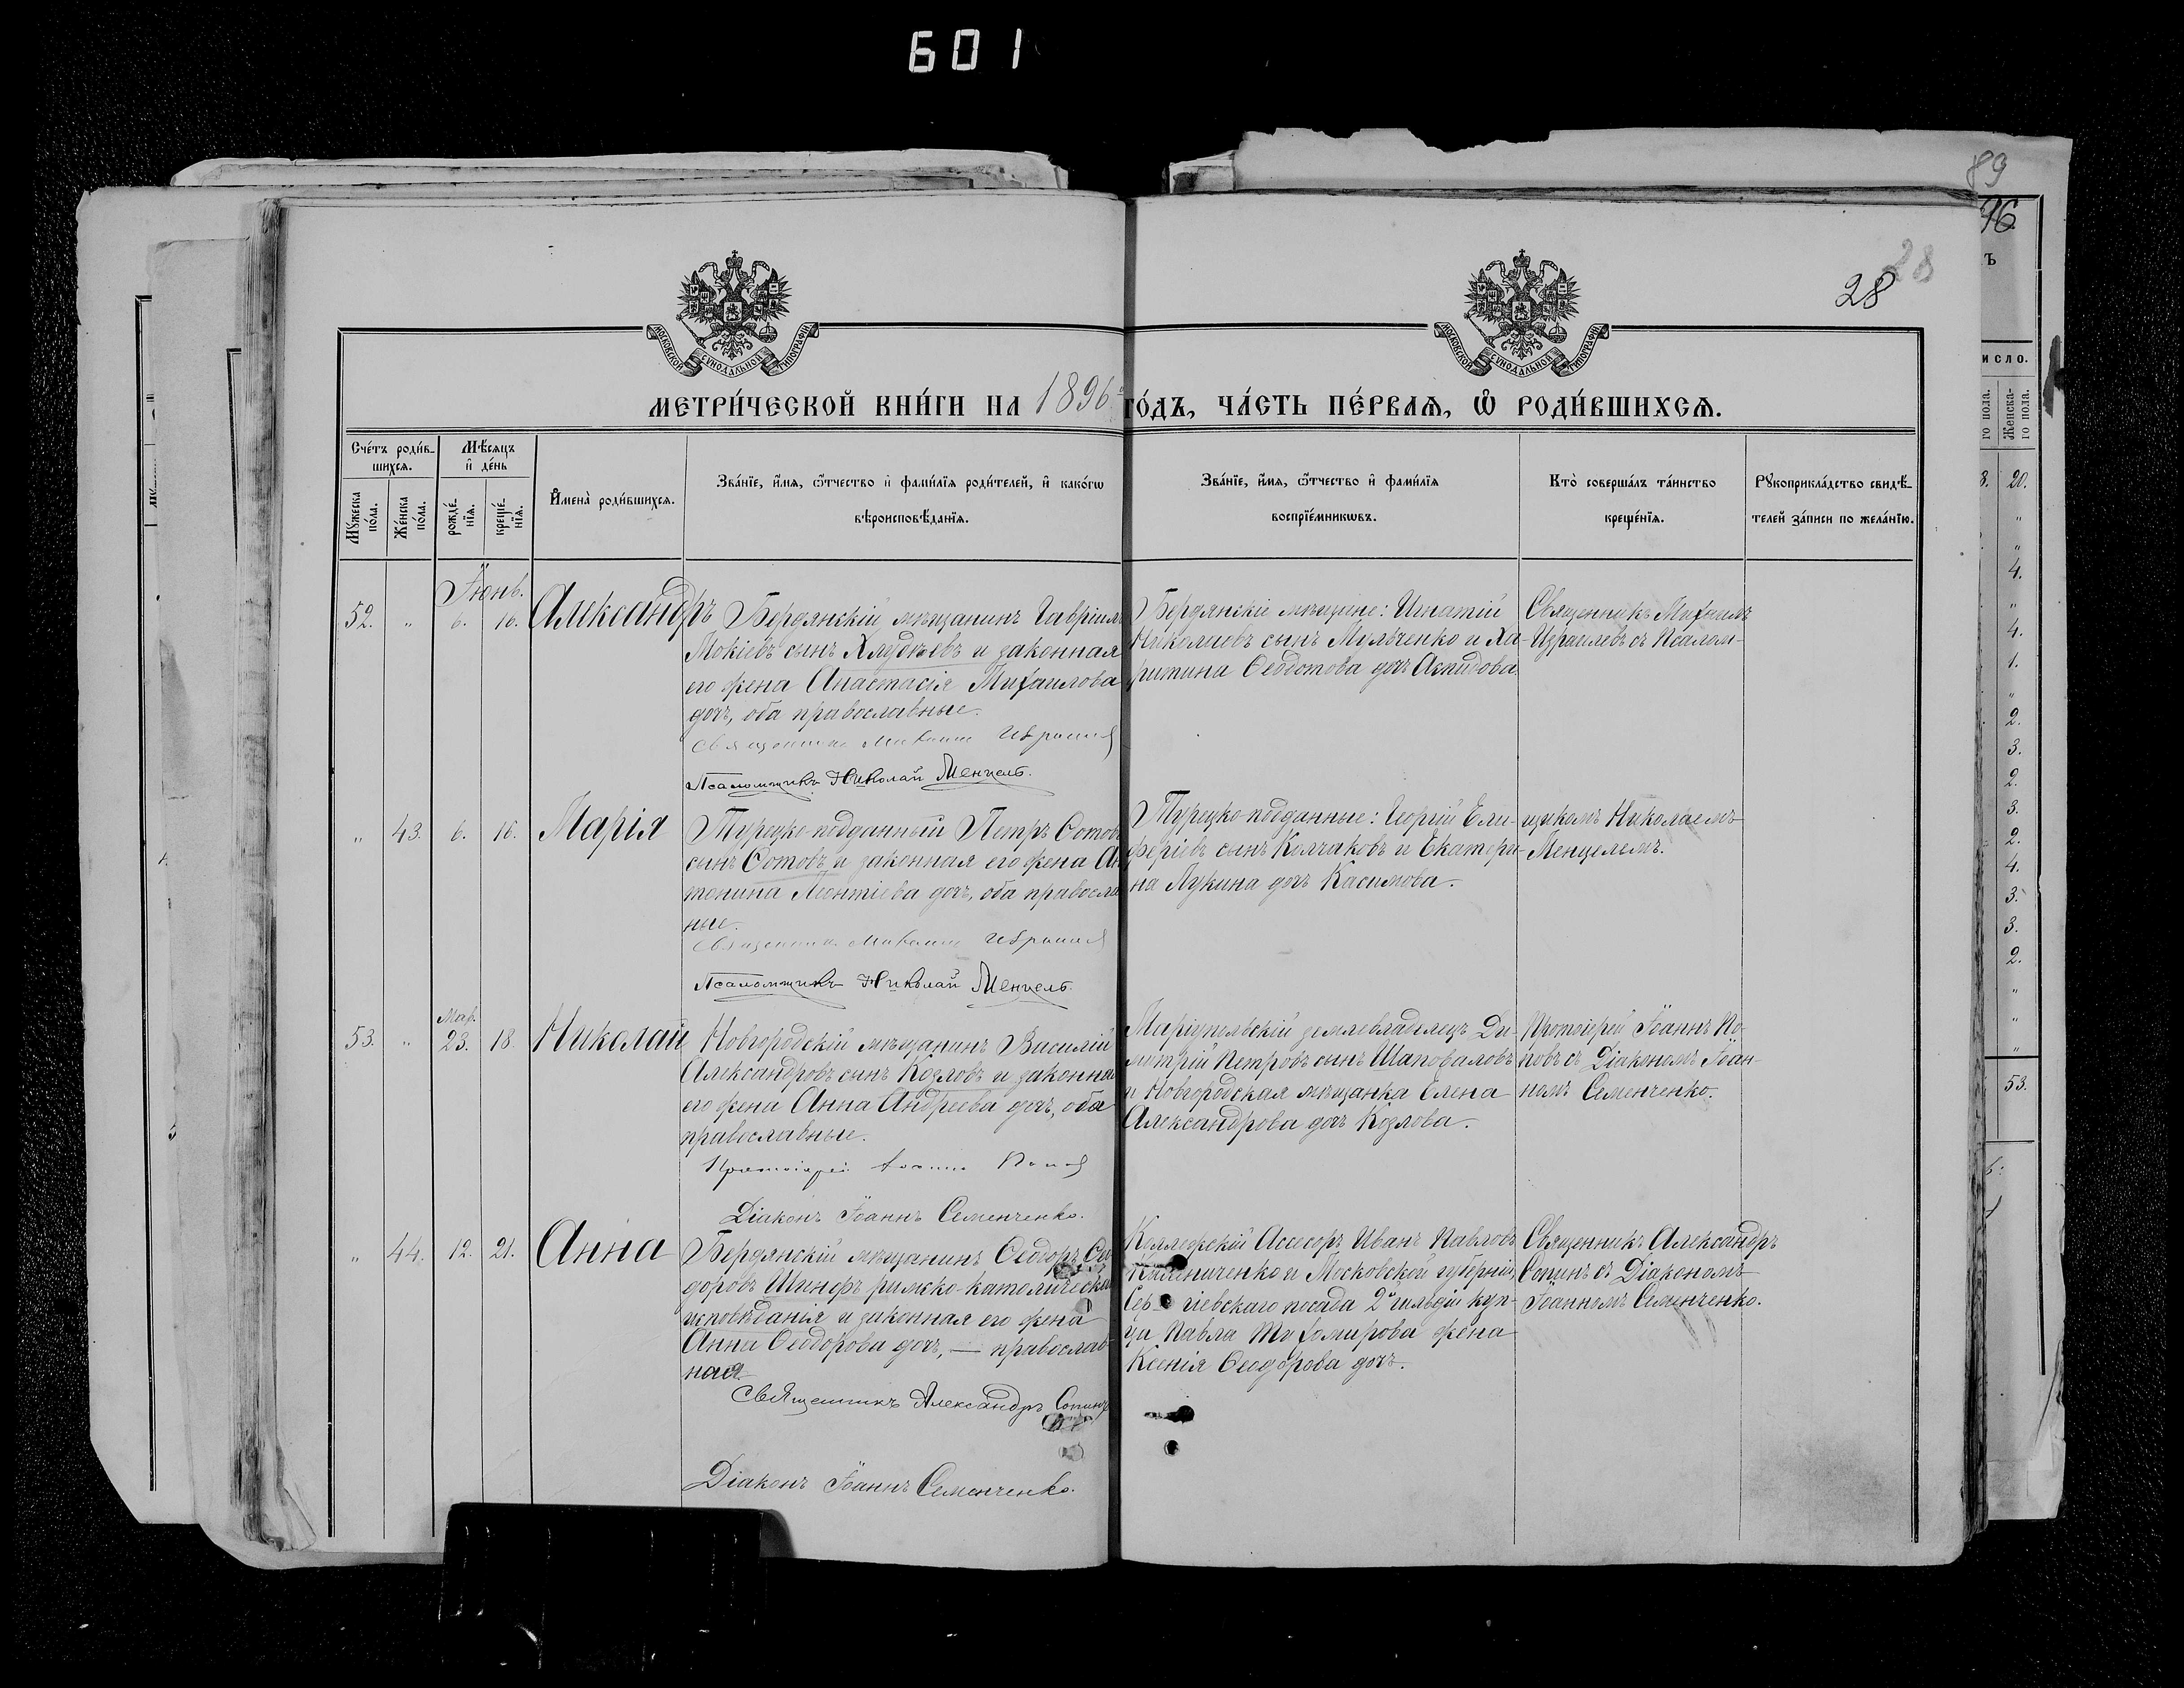 601
89
96
28
28
МОСКОВСКОЙ СѴНОДАЛЬНОЙ ТИПОГРАФІИ
МОСКОВСКОЙ СѴНОДАЛЬНОЙ ТИПОГРАФІИ
МЕТРИ́ЧЕСКОЙ КНИ́ГИ НА 1896 ГО́ДЪ, ЧА́СТЬ ПЕ́РВАЯ, Ѡ РОДИ́ВШИХСЯ.
Сче́тъ роди́в-
шихся.
Мѣ́сяцъ
и де́нь
Мꙋжеска
по́ла.
Же́нска
по́ла.
рожде́-
нїя.
креще́-
нїя.
Имена̀ роди́вшихся.
Зва́нїе, и́мя, ѻ́тчество и фами́лїя роди́телей, и како́гѡ
вѣроисповѣ́данїя.
Зва́нїе, и́мя, ѻ́тчество и фами́лїя
воспрїе́мникѡвъ.
Кто̀ соверша́лъ та́инство
креще́нїя.
Рꙋкоприкла́дство свидѣ́-
телей за́писи по жела́нїю.
Іюнь.
52. " 6. 16. Александръ
Бердянскій мѣщанинъ Гавріилъ
Мокіевъ сынъ Хлудневъ и законная
его жена Анастасія Михаилова
дочь, оба православные.
Священник Михаил Израилев
Псаломщикъ Николай Менцель.
Бердянскіе мѣщане: Игнатій
Николаевъ сынъ Мульченко и Ха-
ритина Ѳедотова дочь Акпидова.
Священникъ Михаилъ
Израилевъ съ Псалом-
" 43. 6. 16. Марія
Турецко-подданный Петръ Сотовъ
сынъ Сотовъ и законная его жена Ан
тонина Леонтіева дочь, оба православ
ные.
Священник Михаил Израилев
Псаломщикъ Николай Менцель.
Турецко-подданные: Георгій Ели-
феріевъ сынъ Колчаковъ и Екатери-
на Лукина дочь Касимова.
щикомъ Николаемъ
Менцелемъ.
Мар.
53. " 23. 18. Николай
Новгородскій мѣщанинъ Василій
Александровъ сынъ Козловъ и законная
его жена Анна Андреева дочь, оба
православные.
Протоіерей Іоаннъ Попов
Діаконъ Іоаннъ Семенченко.
Маріупольскій землевладѣлецъ Ди-
митрій Петровъ сынъ Шаповаловъ
и Новгородская мѣщанка Елена
Александрова дочь Козлова.
Протоіерей Іоаннъ По-
повъ съ Діакономъ Іоан-
номъ Семенченко.
" 44. 12. 21. Анна
Бердянскій мѣщанинъ Ѳеодоръ Ѳео
доровъ Шинфъ римско-католическаго
исповѣданія и законная его жена
Анна Ѳеодорова дочь, — православ-
ная
Священникъ Александръ Сопинъ
Діаконъ Іоаннъ Семенченко.
Коллежскій Ассесоръ Иванъ Павловъ
Калениченко и Московской губерніи,
Сер гіевскаго посада 2й гильдіи куп-
ца Павла Тихомирова жена
Ксенія Ѳеодорова дочь.
Священникъ Александръ
Сопинъ съ Діакономъ
Іоанномъ Семенченко.
исло.
го пола.
Женска-
го пола.
20.
"
"
4.
"
4.
1.
"
2.
3.
2.
3.
2.
4.
3.
3.
2.
"
"
"
53.